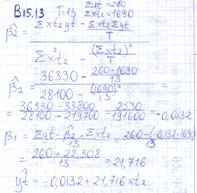 B15.13 T=13 Σyt=260
Σxt₂=1690
β̂₂ = Σxt₂yt - Σxt₂Σyt / T
Σx²t₂ - (Σxt₂)² / T
β̂₂ = 36330 - 260·1690 / 13
28100 - (1690)² / 13
= 36330-33800 / 28100-219700 = 2530 / 191600 = -0,0132
β̂₁ = Σyt-β̂₂·Σxt₂ / 13 = 260-(-0,132·1690) / 13
= 260+22,308 / 13 = 21,716
ŷt = -0,0132+21,716xt₂